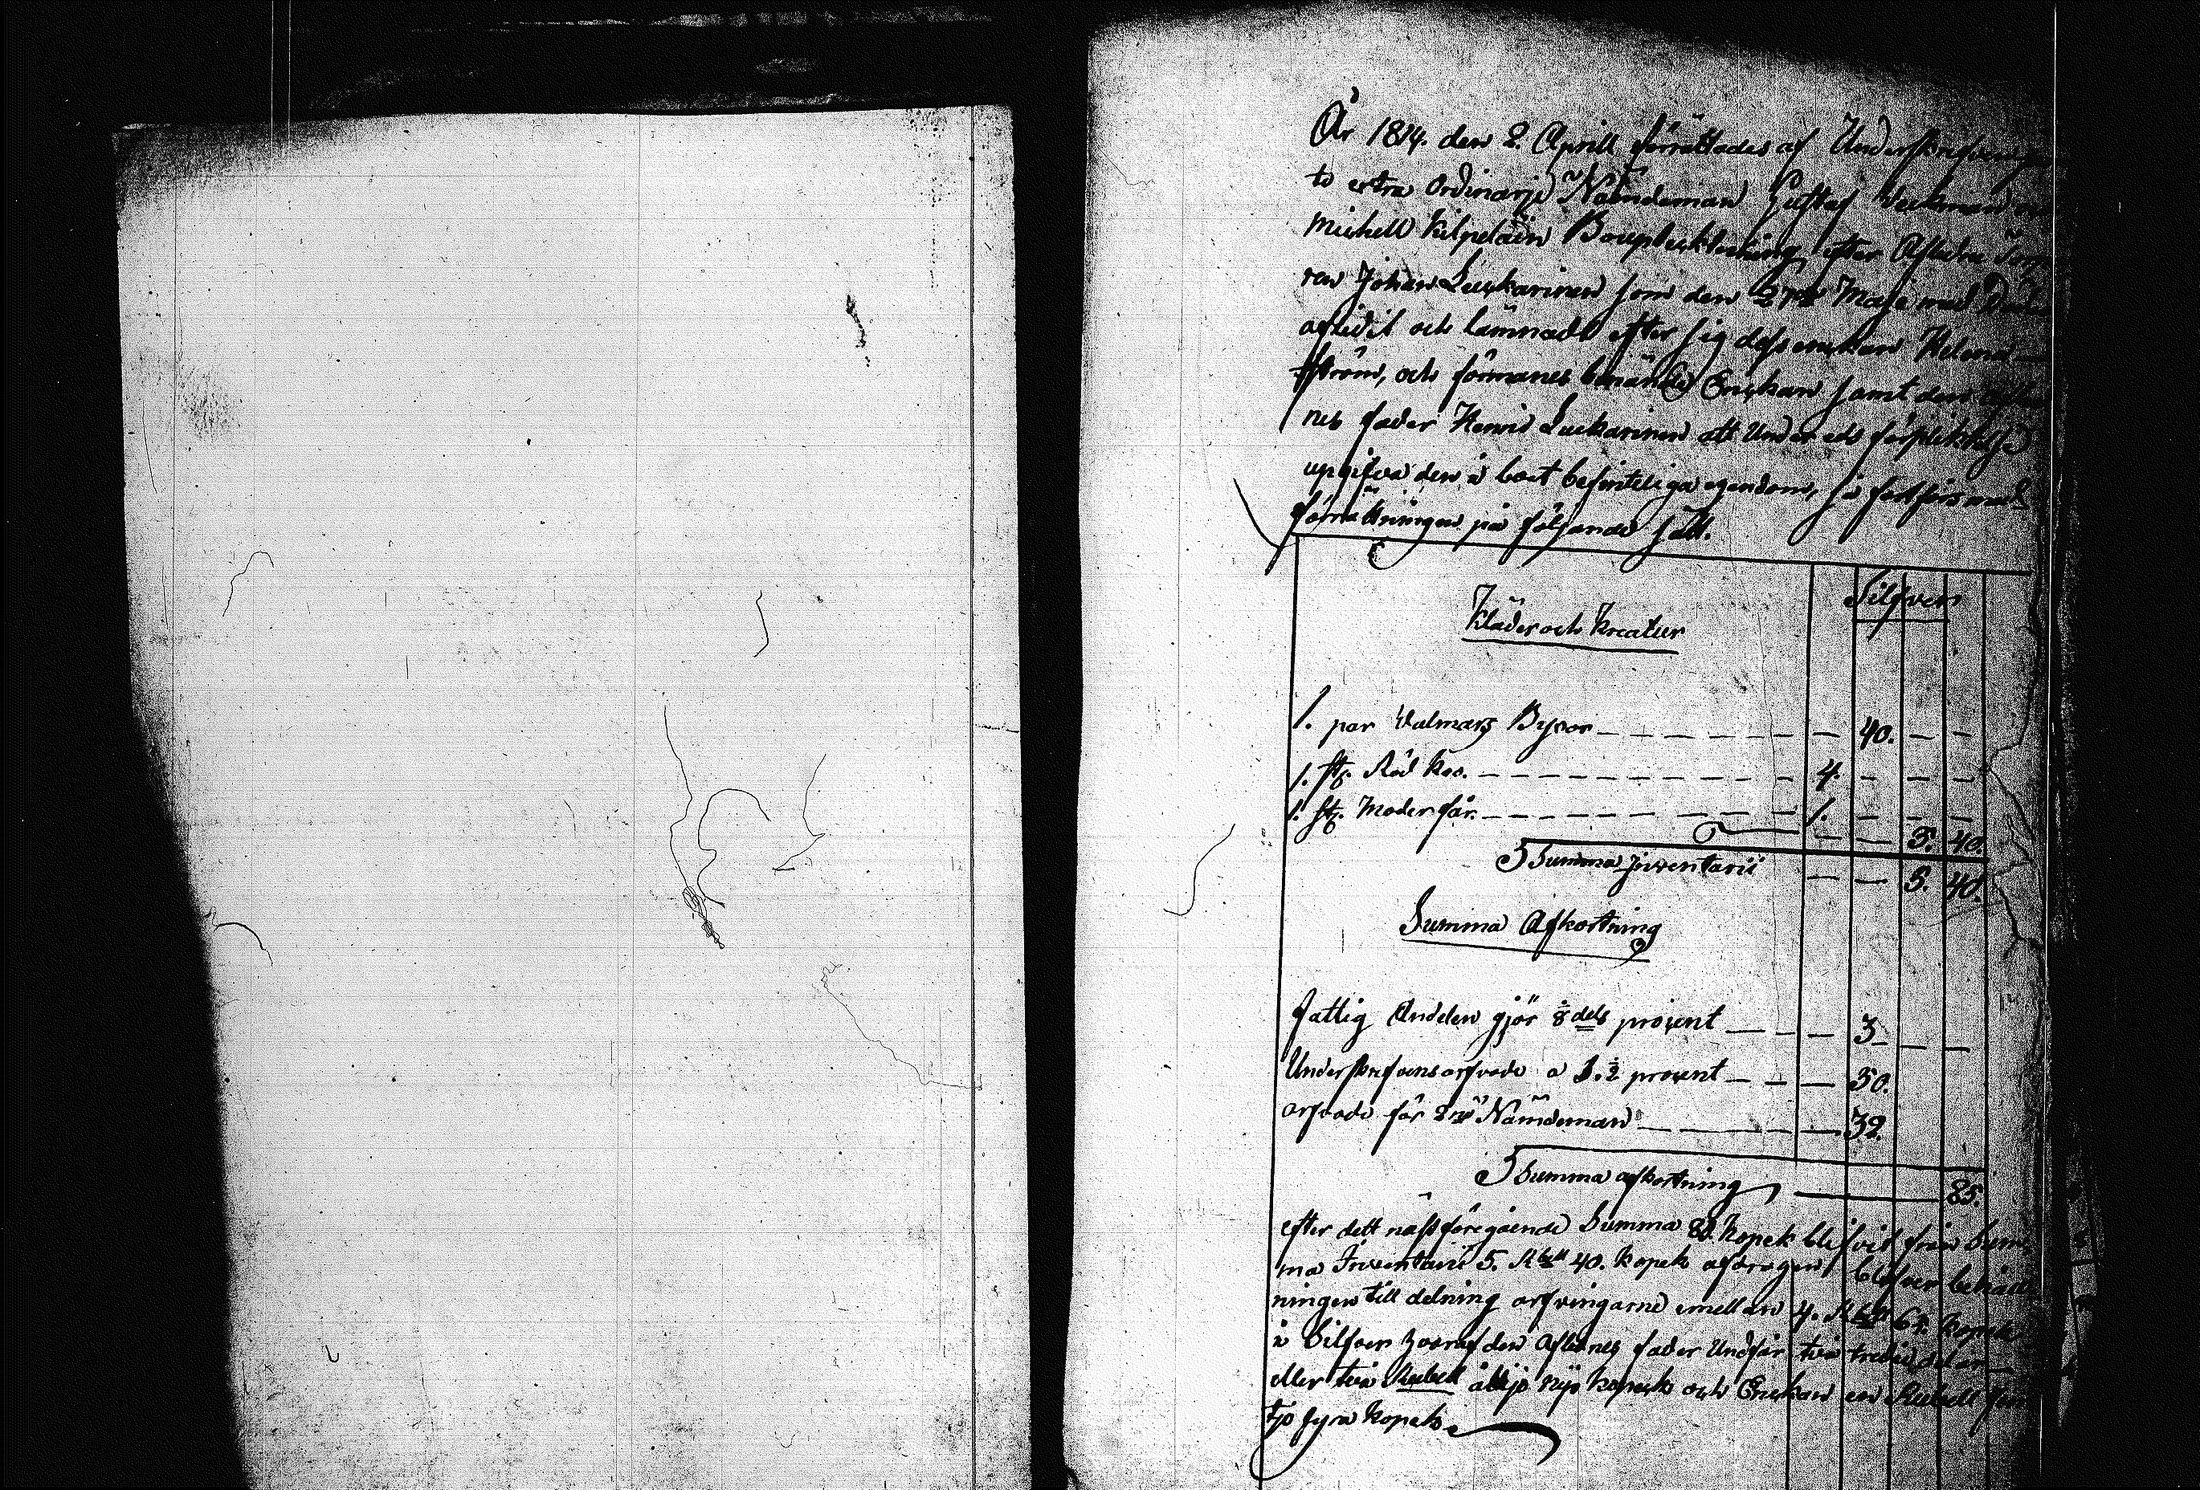 År 1814. den 2. Aprill förrättades af
to extra Ordinarje Nämdeman Gustaf
Michell Kilpeläin Boupteckning efter Aflidne
ran Johan Luckarinen som den Maje med
aflidit och lämnade efter sig dess enckan Helena
Ström, och förmanes benände Enckan samt den
nes fader Henric Luckarinen att Under eds förpliktelse
upgifva den i boet befinteliga egendom, så fortfors med
förrättningen på följande sätt.
Silfver
Kläder och Kreatur
1. par Valmars Byxor 40.
1. st. Röd Ko. 4.
1. st. Moderfår. 1.
5. 40.
Summa Inventarii 5. 40.
Summa Afkortning
fattig Andelen gjör 8 dels prosent 3
Underskrifvens arfvode a prosent 50.
arfvode för Nämdeman 32.
Summa afkortning 85.
efter dett näst föregående Summa Kopek blifvit från Sum
ma Inventarii 5. 40. Kopek afdragen, blifver behåll
ningen till delning arfvingarne emellan 4. Kopek
i Silfver hvaraf den Aflidnes fader Undfår två tredie delar
eller två Rubell Kopeck och Enckan en Rubell fem
tjo fyra Kopek.